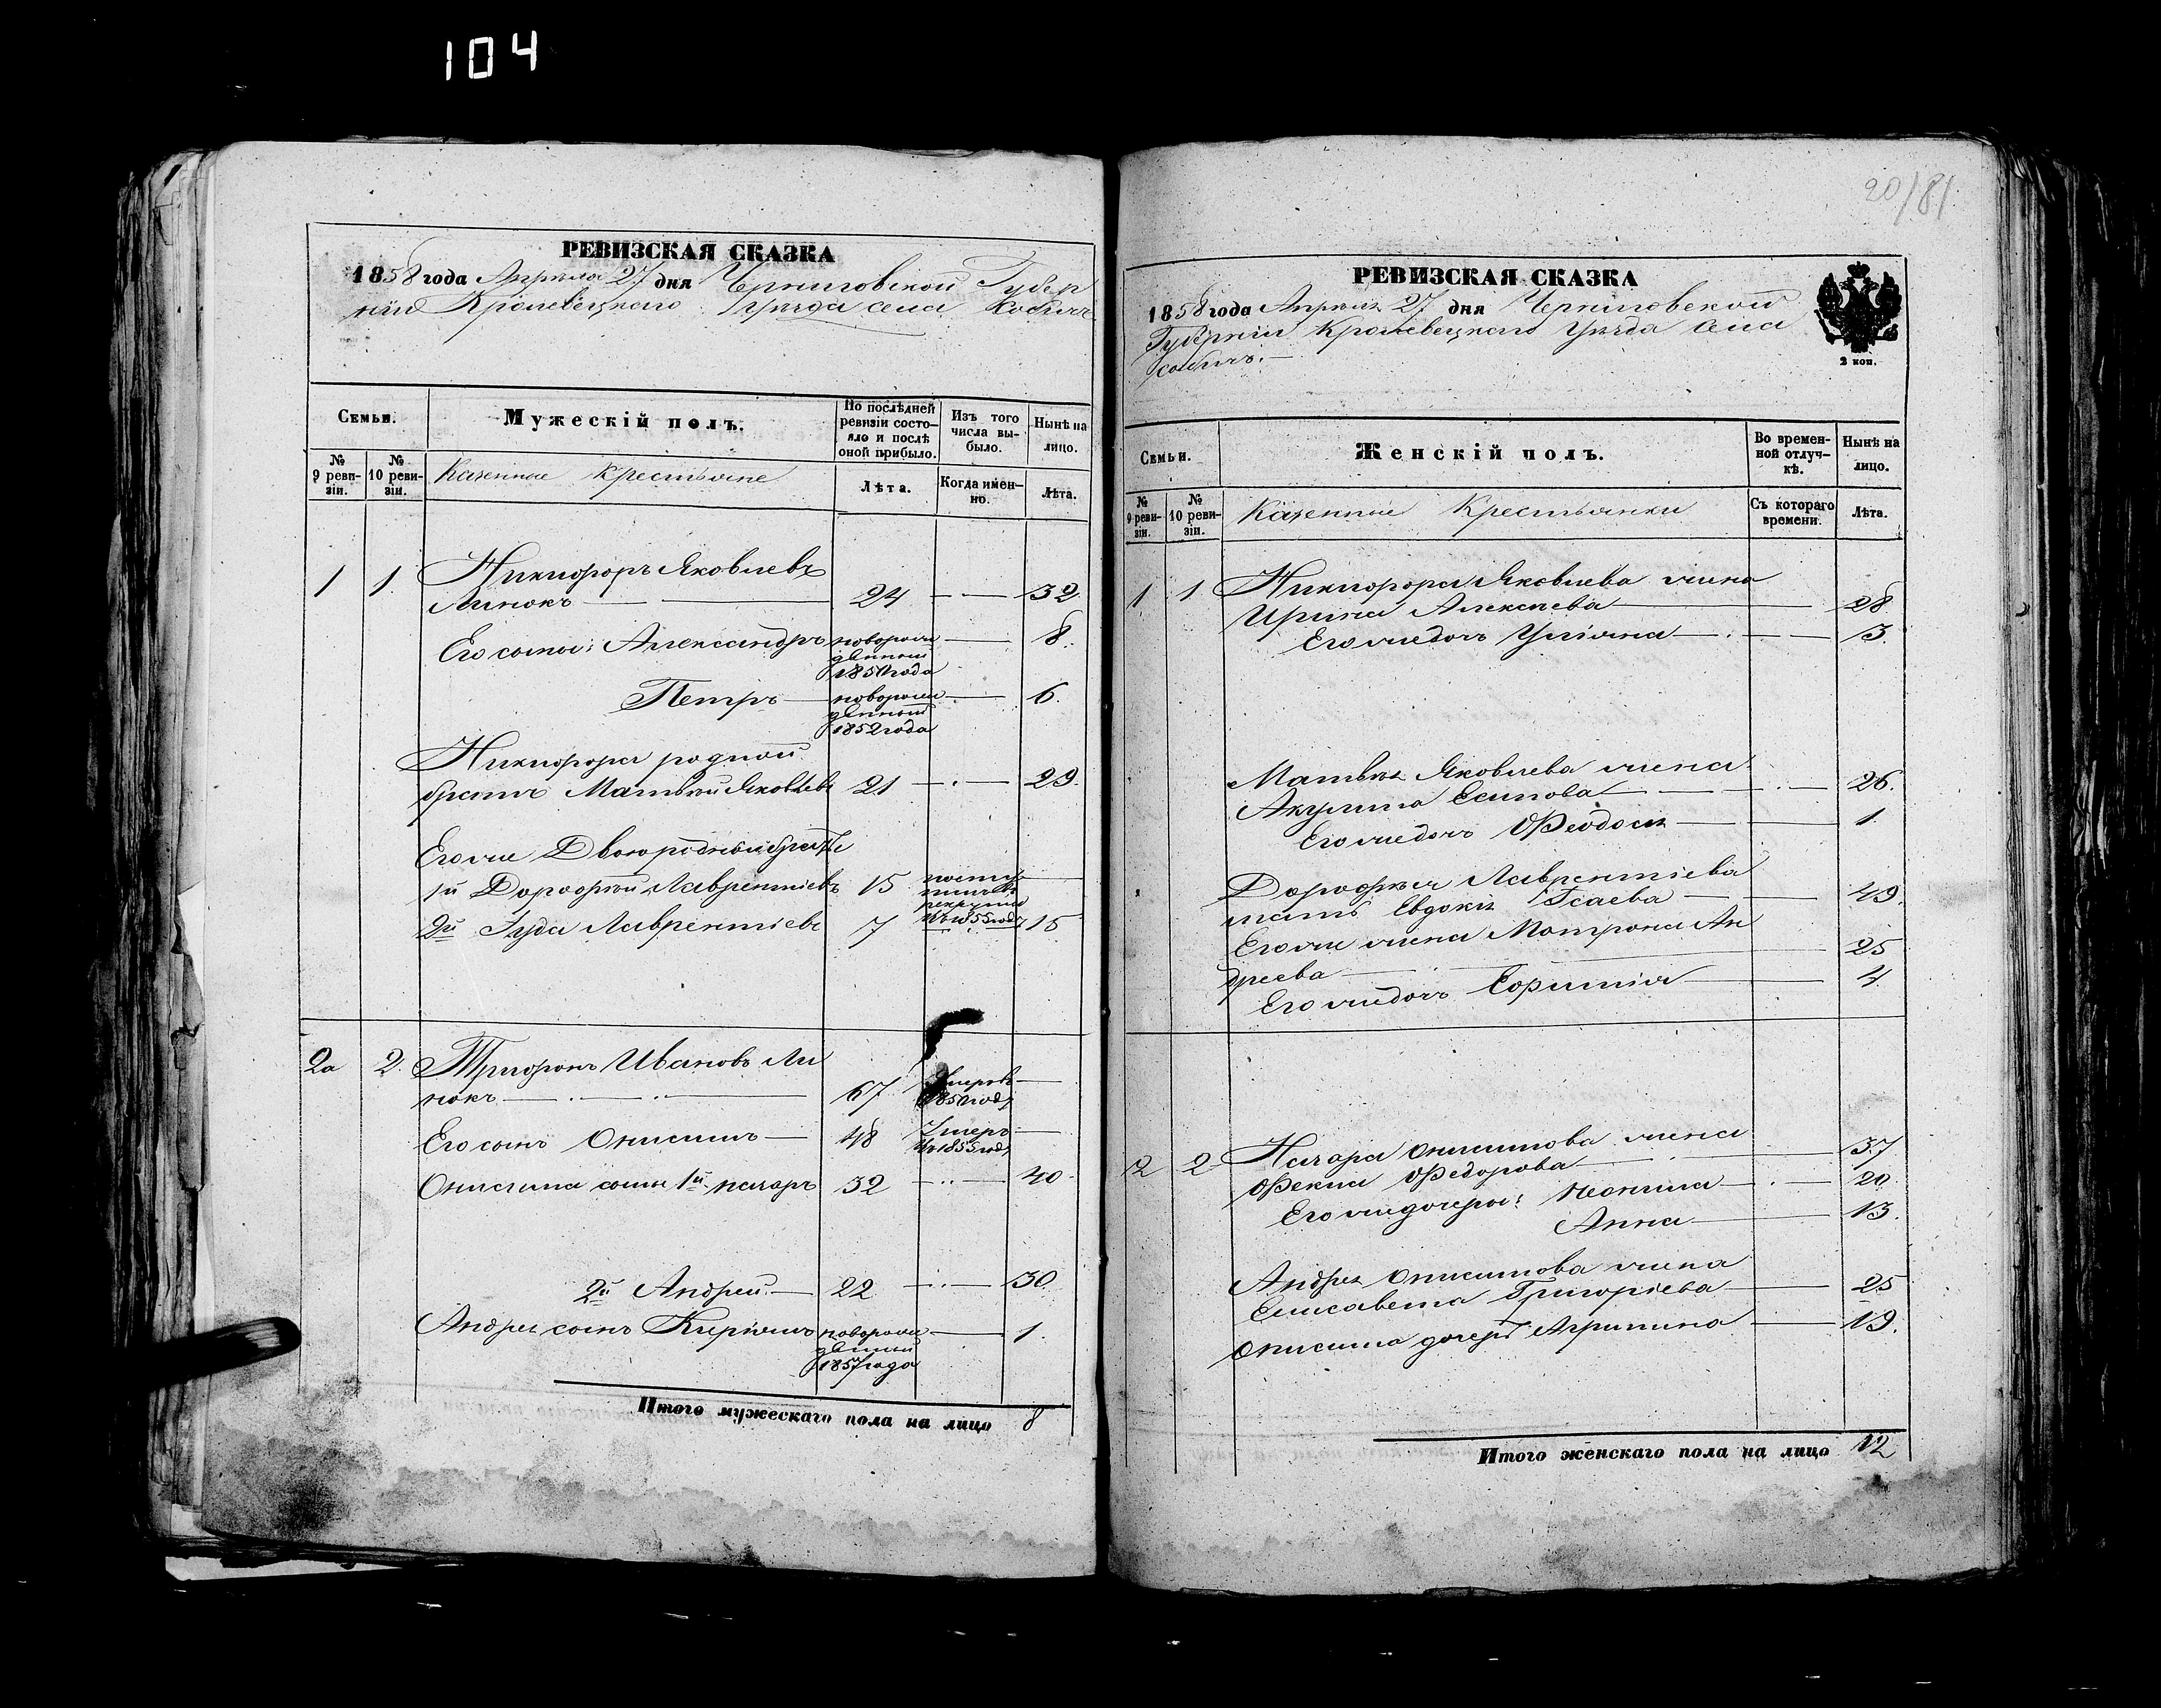 104
РЕВИЗСКАЯ СКАЗКА
1858 года Апреля 27 дня Черниговской Губер
нии Кролевецкаго уезда села Собичъ
Семьи.
Мужескій полъ.
По послѣдней ревизіи состояло и послѣ оной прибыло.
Изъ того числа выбыло.
Нынѣ на лицо.
№ 9 ревизіи.
№ 10 ревизіи.
Казенные крестьяне
Лѣта.
Когда именно.
Лѣта.
1 1 Никифоръ Яковлевъ
Линокъ 24 32
Его сыны: Александръ новорож 8
денный
1850 года
Петръ новорож 6
денный
1852 года
Никифора родной
братъ Матвѣй Яковлевъ 21 29
Его же Двоюродные братья
1й Дорофей Лаврентіевъ 15 посту
пилъ въ
рекруты
2й Іуда Лаврентіевъ 7 въ 1855 году 15
2а 2 Трифонъ Ивановъ Ли
нокъ 67 Умеръ
въ 1850 году
Его сынъ Онисимъ 48 Умеръ
въ 1855 году
Онисима сыны 1й Назаръ 32 40
2й Андрей 22 30
Андрея сынъ Киріякъ новорож 1
денный
1857 года
Итого мужескаго пола на лицо 8
20/81
РЕВИЗСКАЯ СКАЗКА
1858 года Апреля 27 дня Черниговской
Губерніи Кролевецкаго Уезда Села
Собичъ.
2 коп.
Семьи.
Женскій полъ.
Во временной отлучкѣ.
Нынѣ на лицо.
№ 9 ревизіи.
№ 10 ревизіи.
Казенные Крестьянки
Съ котораго времени.
Лѣта.
1 1 Никифора Яковлева жена
Ирина Алексѣева 28
Его же дочь Уліяна 3
Матвѣя Яковлева жена
Акулина Есипова 26
Его же дочь Феодосья 1
Дорофея Лаврентіева
мать Евдокія Исаева 49
Его же жена Матрона Ан
дреева 25
Его же дочь Евфимія 4
2 2 Назара Онисимова жена
Фекла Федорова 37
Его же дочеры: Неонила 20
Анна 13
Андрея Онисимова жена
Елисавета Григоріева 25
Онисима дочерь Агрипина 19
Итого женскаго пола на лицо 12